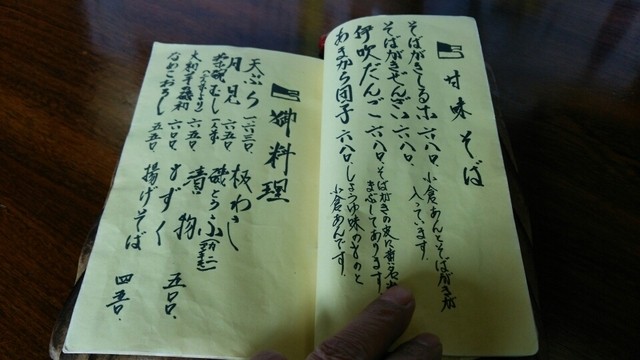 甘味そば
そばがきしるこ 六八〇. 小倉あんとそばがきが
入っています.
そばがきぜんざい 六八〇. そばがきの実に黄名粉
まぶしてあります
伊吹だんご 六八〇.
あまから団子 六八〇. しょうゆ味のものと
小倉あんです.
御料理
天ぷら 一六三〇. 板わさ
月見 六五〇.
茶碗むし
なめこおろし 五五〇. 揚げそば 四五〇.
もずく
漬物 五〇〇.